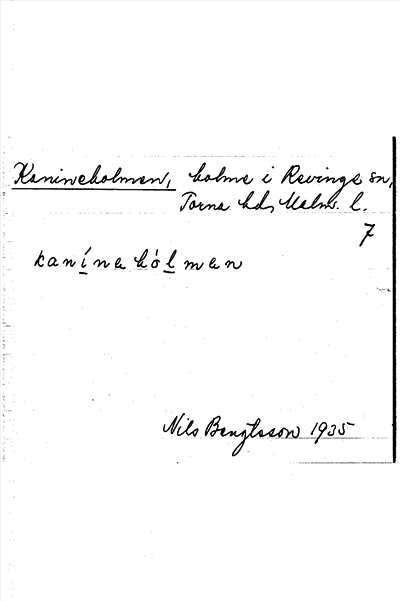 Kanineholmen, holme i Revinge sn,
Torna hd, Malm. l.
7
kanínehólmen
Nils Bengtsson 1935